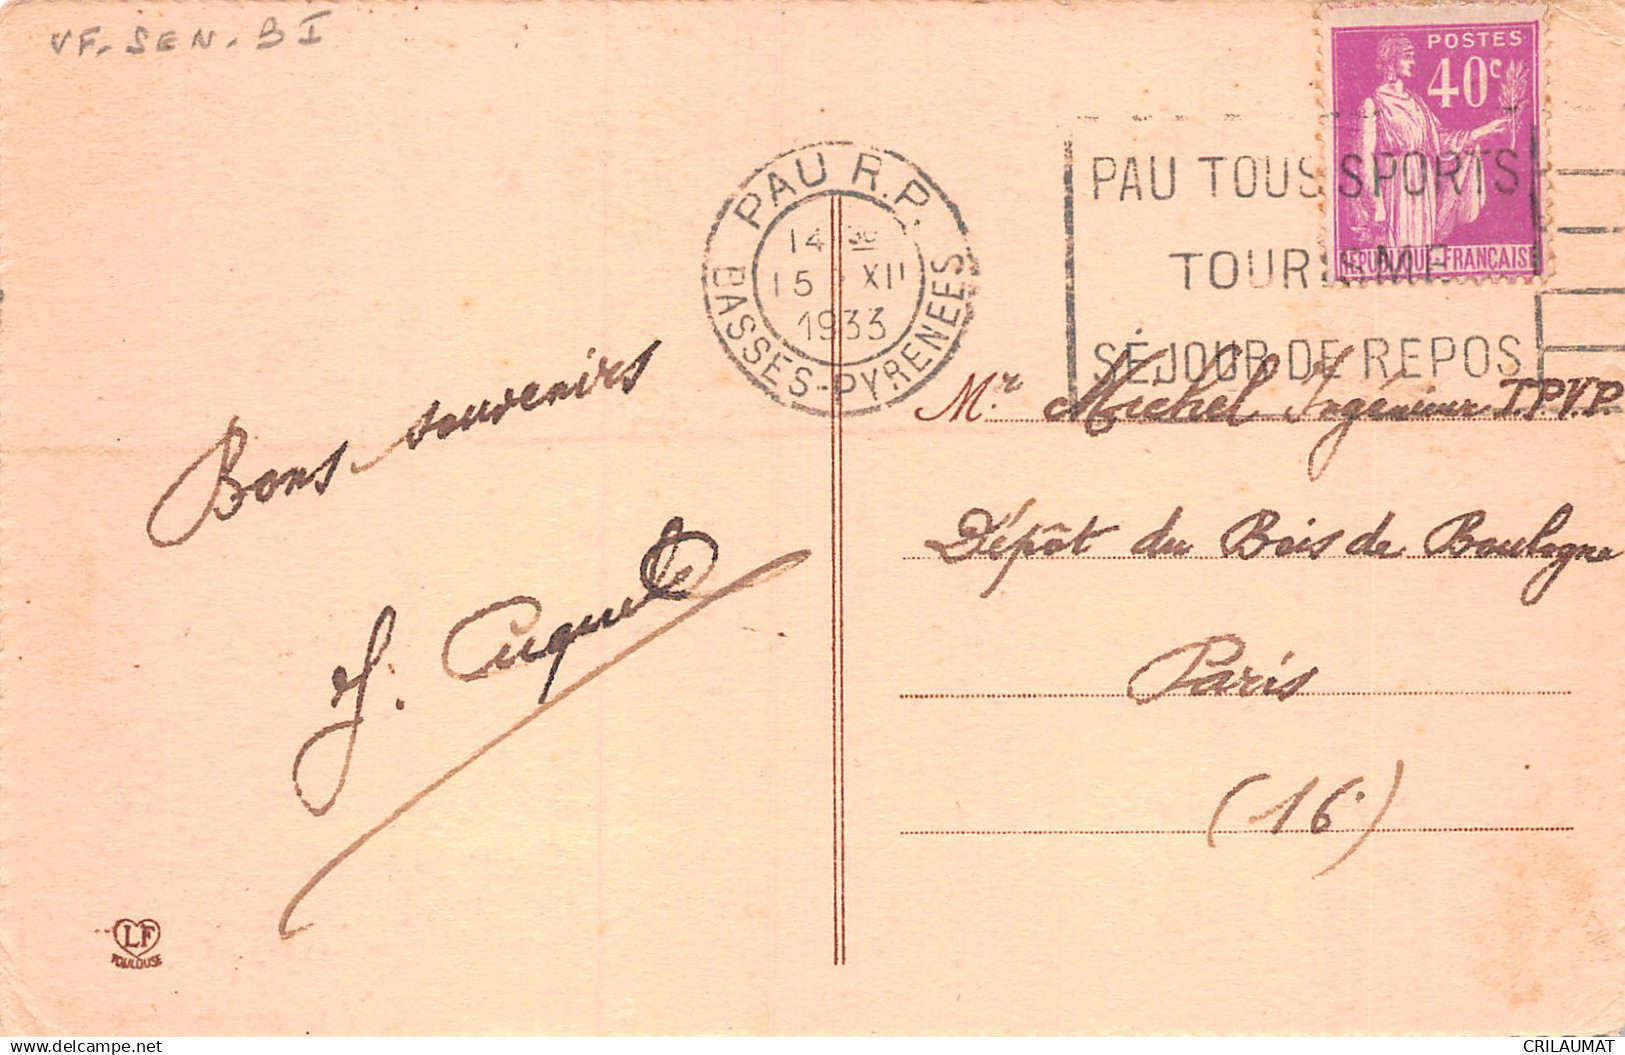 VF. SEN. B I
POSTES
40c
REPUBLIQUE FRANÇAISE
PAU R.P.
14 30
15 XII
1933
BASSES-PYRENEES
PAU TOUS SPORTS
TOURISME
SÉJOUR DE REPOS
Bons souvenirs
Mr. Michel Ingénieur T.P.V.P.
Dépôt du Bois de Boulogne
Paris
(16)
LF
TOULOUSE
delcampe.net
CRILAUMAT